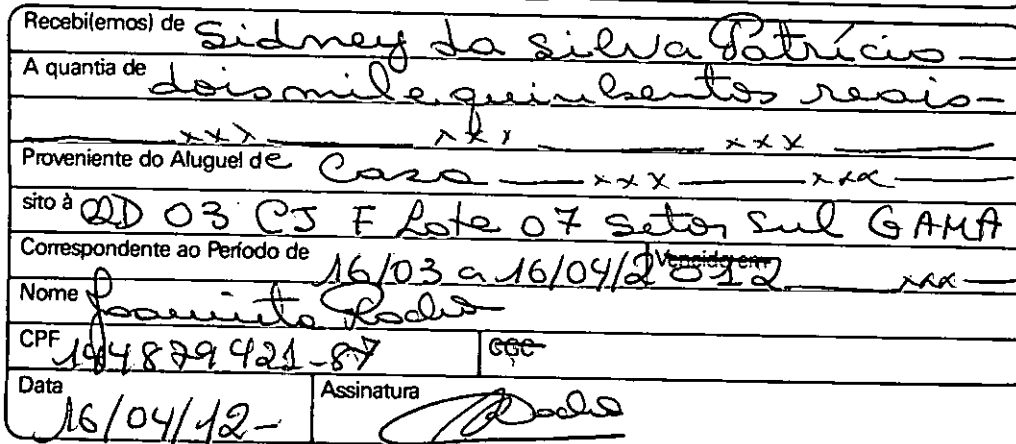 Recebi(emos) de Sidney da Silva Patrício
A quantia de dois mil e quinhentos reais
xxx xxx xxx
Proveniente do Aluguel de Casa xxx xxx
sito à QD 03 CJ F Lote 07 Setor Sul GAMA
Correspondente ao Período de 16/03 a 16/04/2012 Vencido em xxx
Nome Rocha
CPF 144879421-87 CGC
Data 16/04/12- Assinatura Rocha